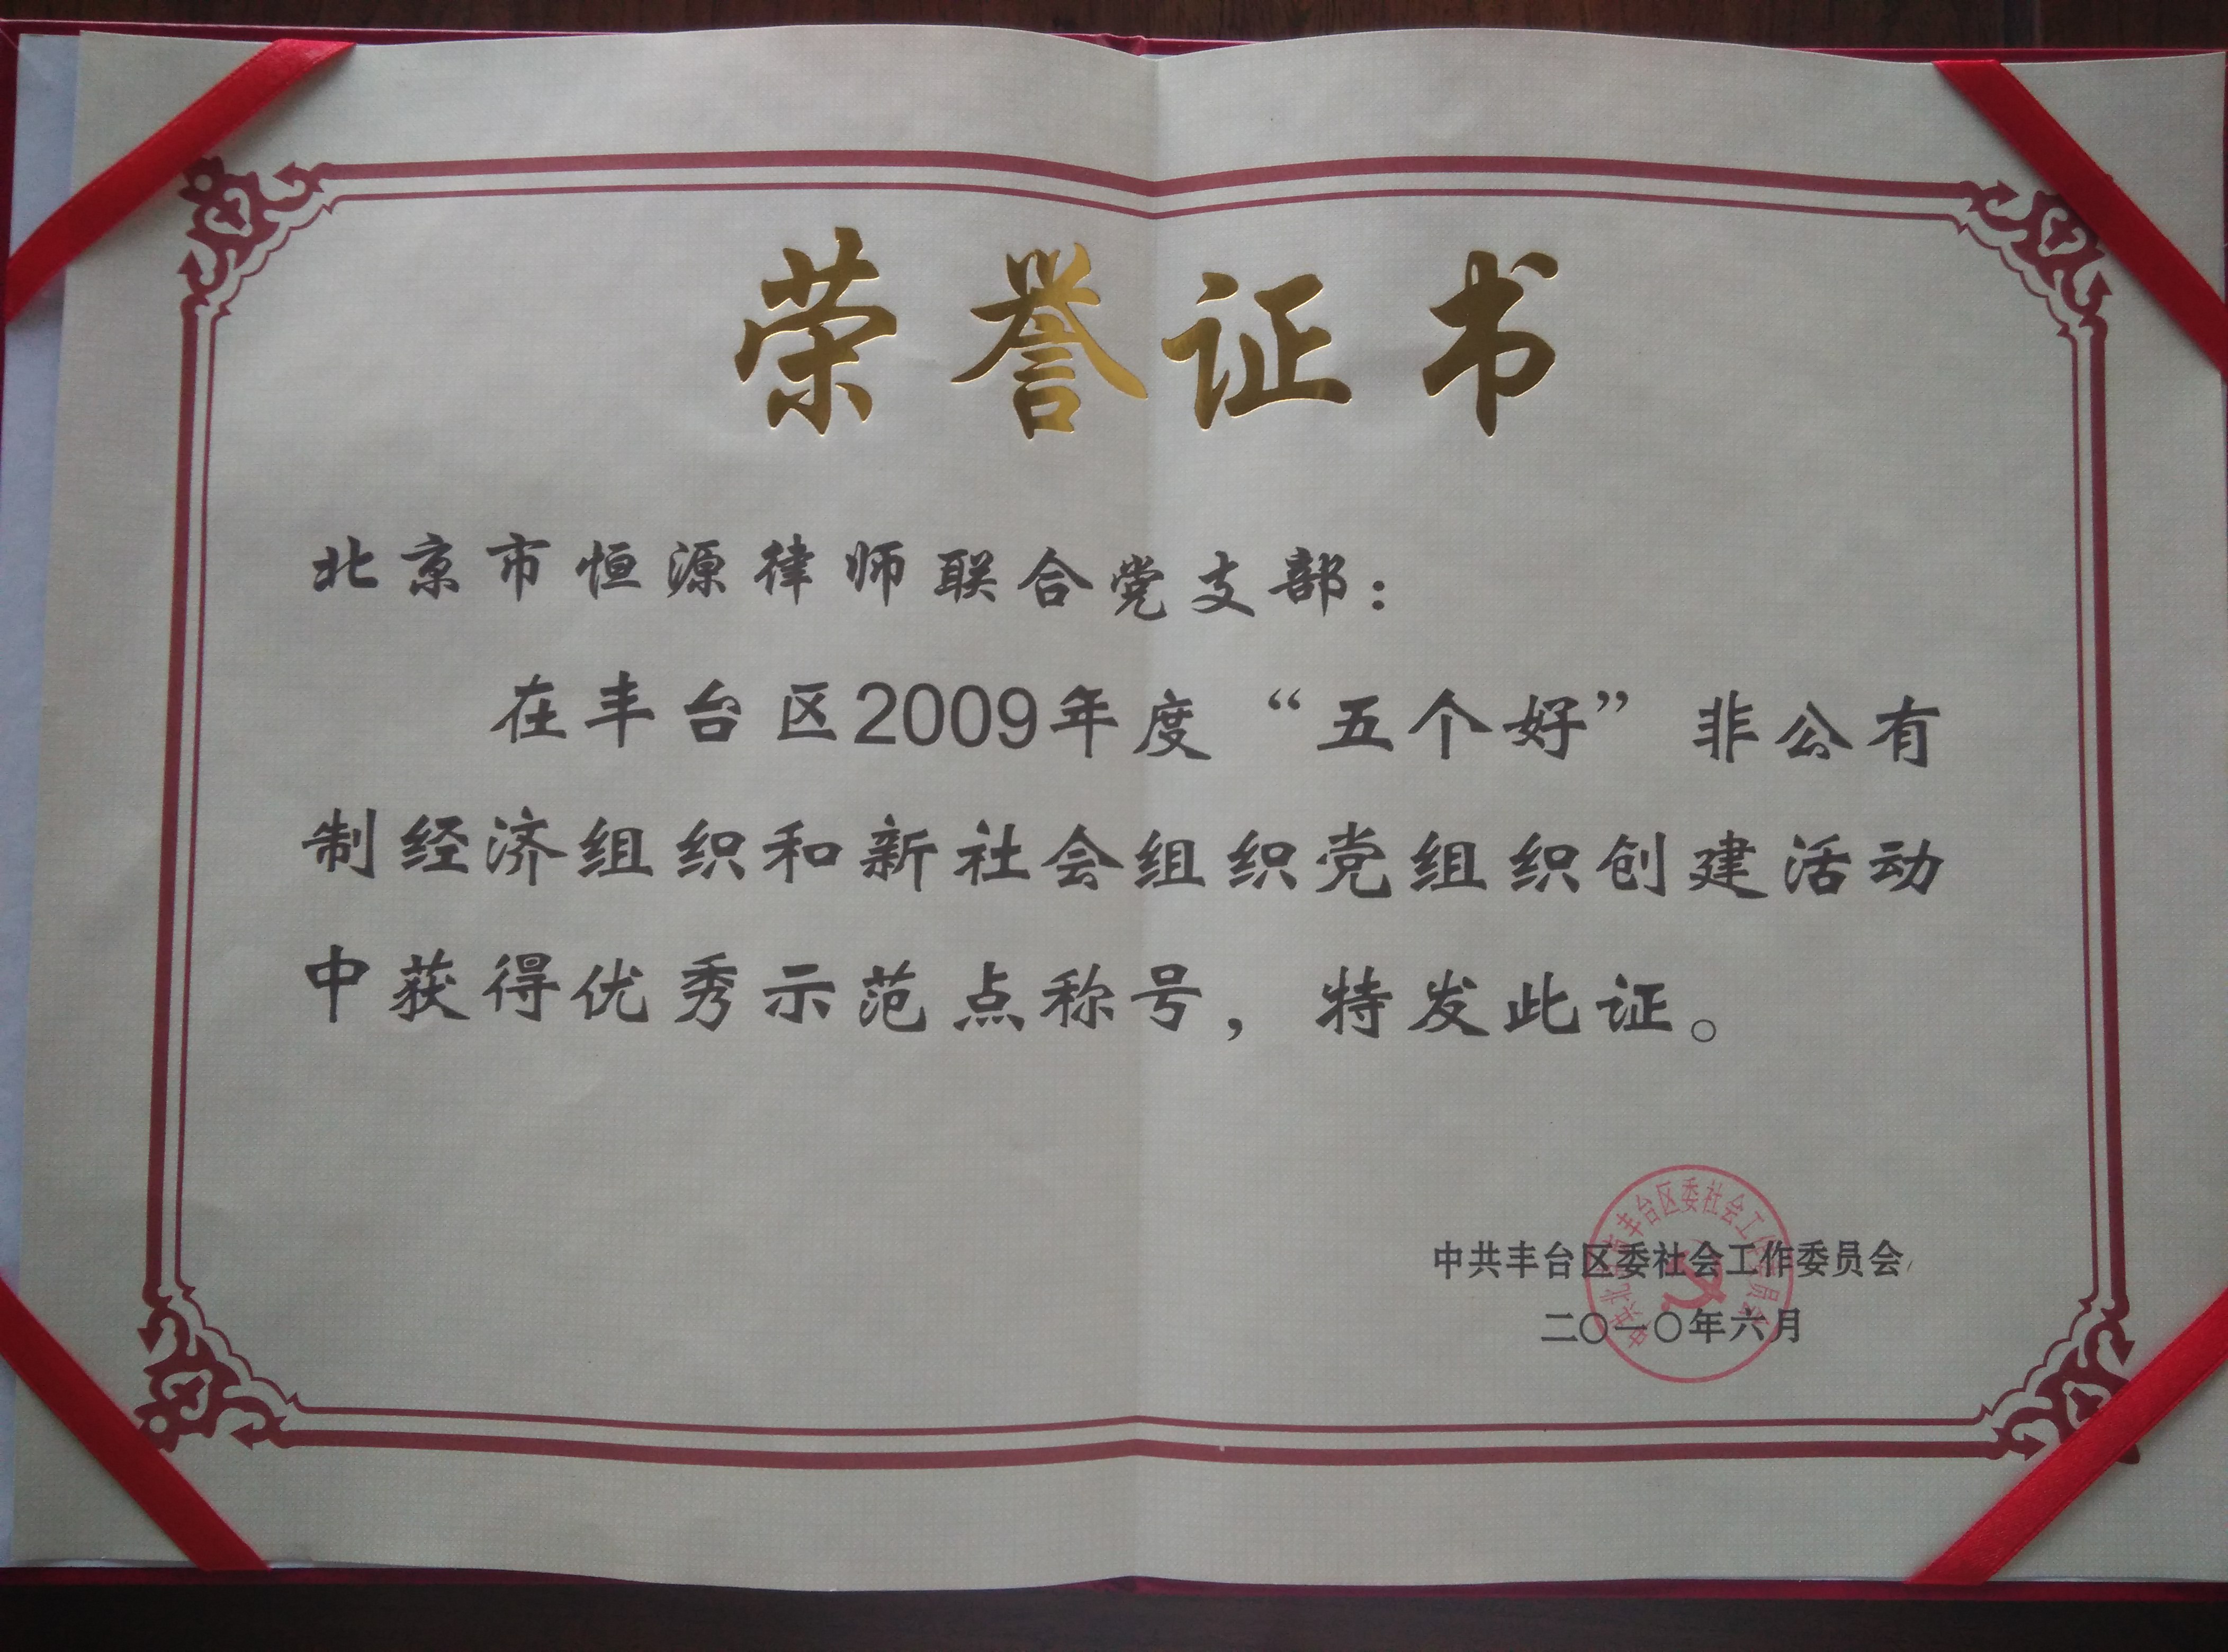 荣誉证书
北京市恒源律师联合党支部：
在丰台区2009年度“五个好”非公有
制经济组织和新社会组织党组织创建活动
中获得优秀示范点称号，特发此证。
中共丰台区委社会工作委员会
二〇一〇年六月
中共北京市丰台区委社会工作委员会